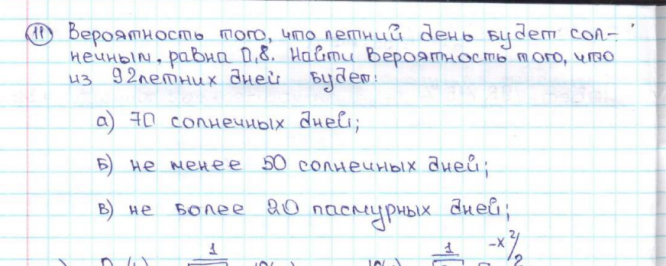 11 Вероятность того, что летний день будет сол-
нечным, равна 0,8. Найти вероятность того, что
из 92 летних дней будет:
а) 70 солнечных дней;
б) не менее 50 солнечных дней;
в) не более 20 пасмурных дней;